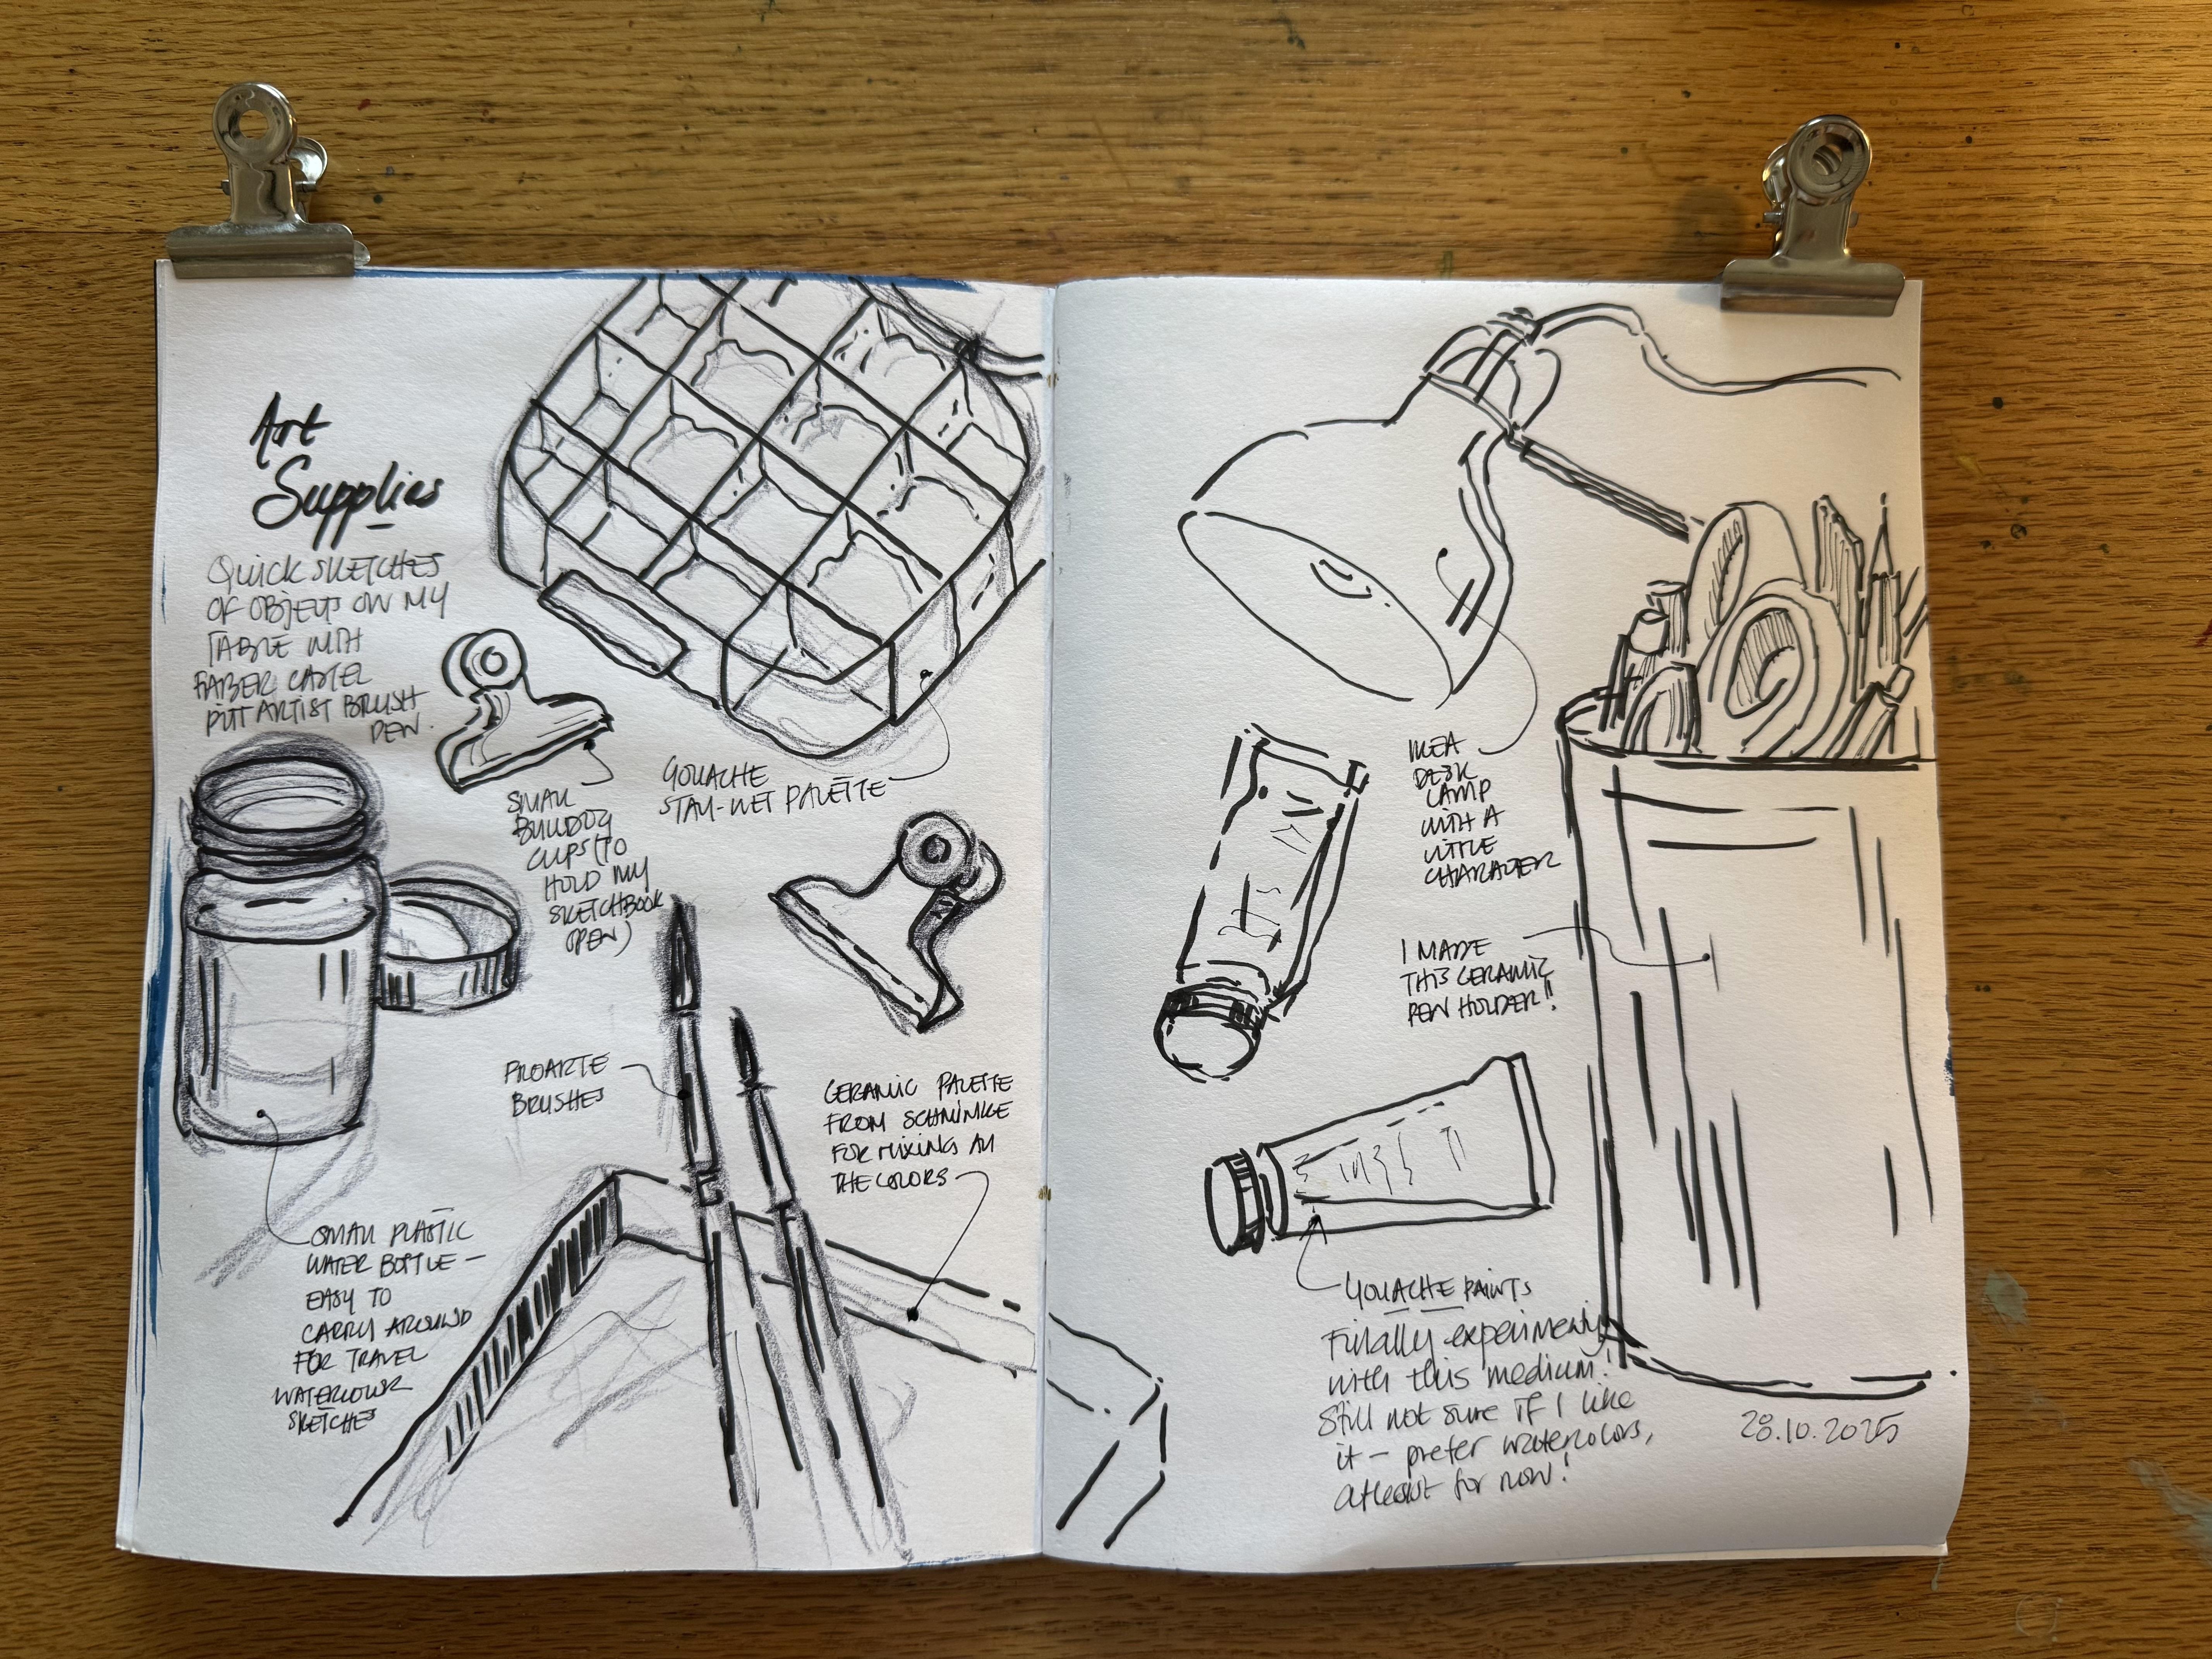 Art
Supplies
QUICK SKETCHES
OF OBJECTS ON MY
TABLE WITH
FABER CASTEL
PITT ARTIST BRUSH
PEN.
SMALL
BULLDOG
CLIPS (TO
HOLD MY
SKETCHBOOK
OPEN)
GOUACHE
STAY-WET PALETTE
PROARTE
BRUSHES
CERAMIC PALETTE
FROM SCHMINKE
FOR MIXING ALL
THE COLORS
SMALL PLASTIC
WATER BOTTLE -
EASY TO
CARRY AROUND
FOR TRAVEL
WATERCOLOUR
SKETCHES
IKEA
DESK
LAMP
WITH A
LITTLE
CHARACTER
I MADE
THIS CERAMIC
PEN HOLDER!!
GOUACHE PAINTS
Finally experimenting
with this medium!
Still not sure IF I like
it - prefer watercolors,
atleast for now!
28.10.2025